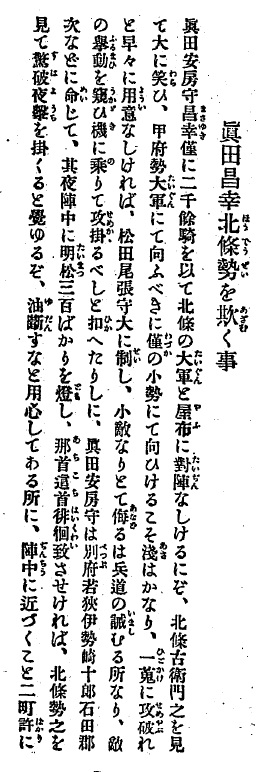 眞田昌幸北條勢を欺く事
眞田安房守昌幸僅に二千餘騎を以て北條の大軍と屋布に對陣なしけるにぞ、北條右衞門之を見
て大に笑ひ、甲府勢大軍にて向ふべきに僅の小勢にて向ひけるこそ淺はかなり、一蒐に攻破れ
と早々に用意なしければ、松田尾張守大に制し、小敵なりとて侮るは兵道の誡むる所なり、敵
の擧動を窺ひ機に乘りて攻掛るべしと扣へたりしに、眞田安房守は別府若狹伊勢崎十郎石田郡
次などに命じて、其夜陣中に明松三百ばかりを燈し、那首這首徘徊致させければ、北條勢之を
見て驚破夜擊を掛くると覺ゆるぞ、油斷すなと用心してある所に、陣中に近づくこと二町許に